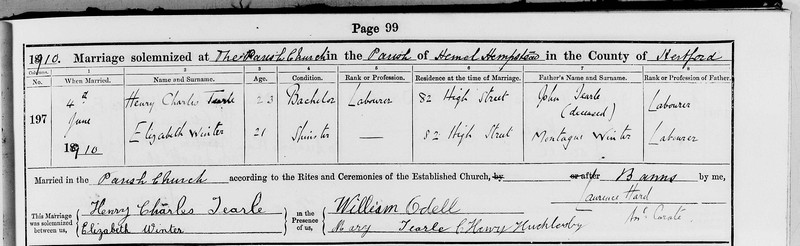 Page 99
1910. Marriage solemnized at The Parish Church in the Parish of Hemel Hempstead in the County of Hertford
Columns. 1 2 3 4 5 6 7 8
No. When Married. Name and Surname. Age. Condition. Rank or Profession. Residence at the time of Marriage. Father's Name and Surname. Rank or Profession of Father.
197 4th June 1910 Henry Charles Tearle 23 Bachelor Labourer 82 High Street John Tearle (deceased) Labourer
Elizabeth Winter 21 Spinster — 82 High Street Montague Winter Labourer
Married in the Parish Church according to the Rites and Ceremonies of the Established Church, by or after Banns by me,
Laurence Hard
Curate.
This Marriage was solemnized between us, Henry Charles Tearle in the Presence of us, William Odell
Elizabeth Winter Mary Tearle C Henry